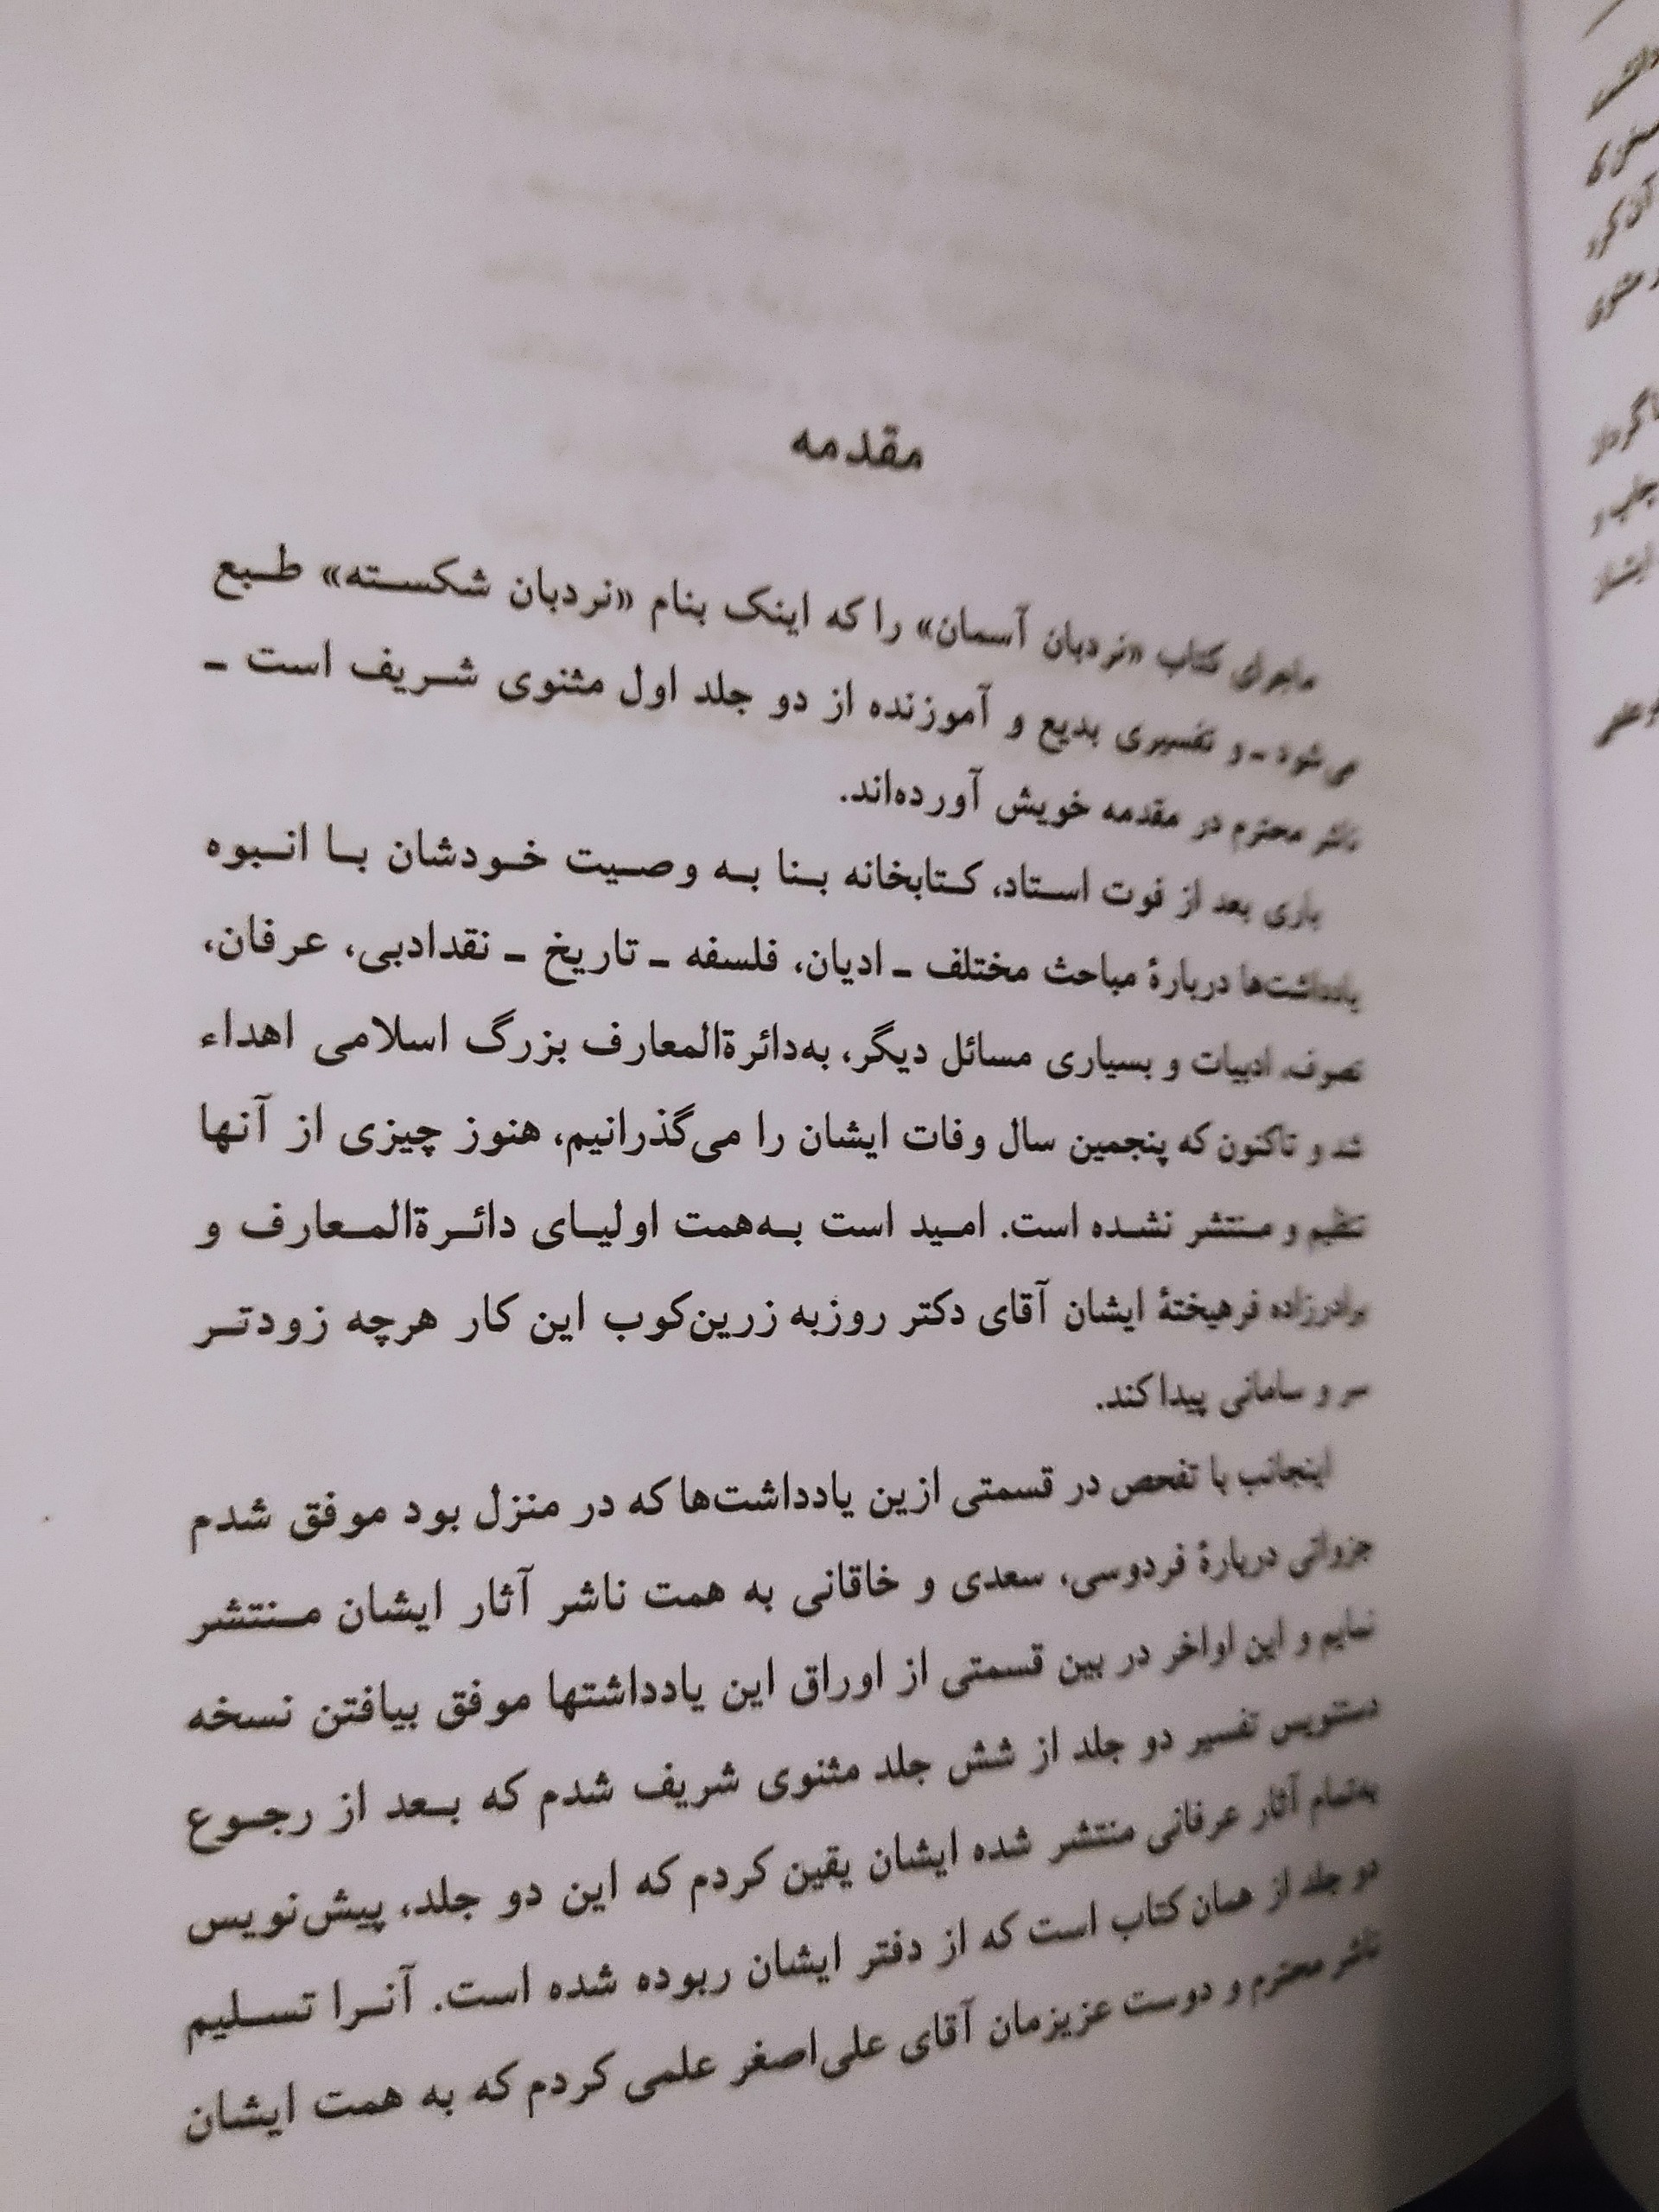 مقدمه
ماجرای کتاب «نردبان آسمان» را که اینک بنام «نردبان شکسته» طبع
می‌شود ـ و تفسیری بدیع و آموزنده از دو جلد اول مثنوی شریف است ـ
ناشر محترم در مقدمه خویش آورده‌اند.
باری بعد از فوت استاد، کتابخانه بنا به وصیت خودشان با انبوه
یادداشت‌ها دربارهٔ مباحث مختلف ـ ادیان، فلسفه ـ تاریخ ـ نقدادبی، عرفان،
تصرف، ادبیات و بسیاری مسائل دیگر، به‌دائرةالمعارف بزرگ اسلامی اهداء
شد و تاکنون که پنجمین سال وفات ایشان را می‌گذرانیم، هنوز چیزی از آنها
تنظیم و منتشر نشده است. امید است به‌همت اولیای دائرةالمعارف و
برادرزاده فرهیختهٔ ایشان آقای دکتر روزبه زرین‌کوب این کار هرچه زودتر
سر و سامانی پیدا کند.
اینجانب با تفحص در قسمتی ازین یادداشت‌ها که در منزل بود موفق شدم
جزواتی دربارهٔ فردوسی، سعدی و خاقانی به همت ناشر آثار ایشان منتشر
نمایم و این اواخر در بین قسمتی از اوراق این یادداشتها موفق بیافتن نسخه
دستویس تفسیر دو جلد از شش جلد مثنوی شریف شدم که بعد از رجوع
به‌تمام آثار عرفانی منتشر شده ایشان یقین کردم که این دو جلد، پیش‌نویس
دو جلد از همان کتاب است که از دفتر ایشان ربوده شده است. آنرا تسلیم
ناشر محترم و دوست عزیزمان آقای علی‌اصغر علمی کردم که به همت ایشان